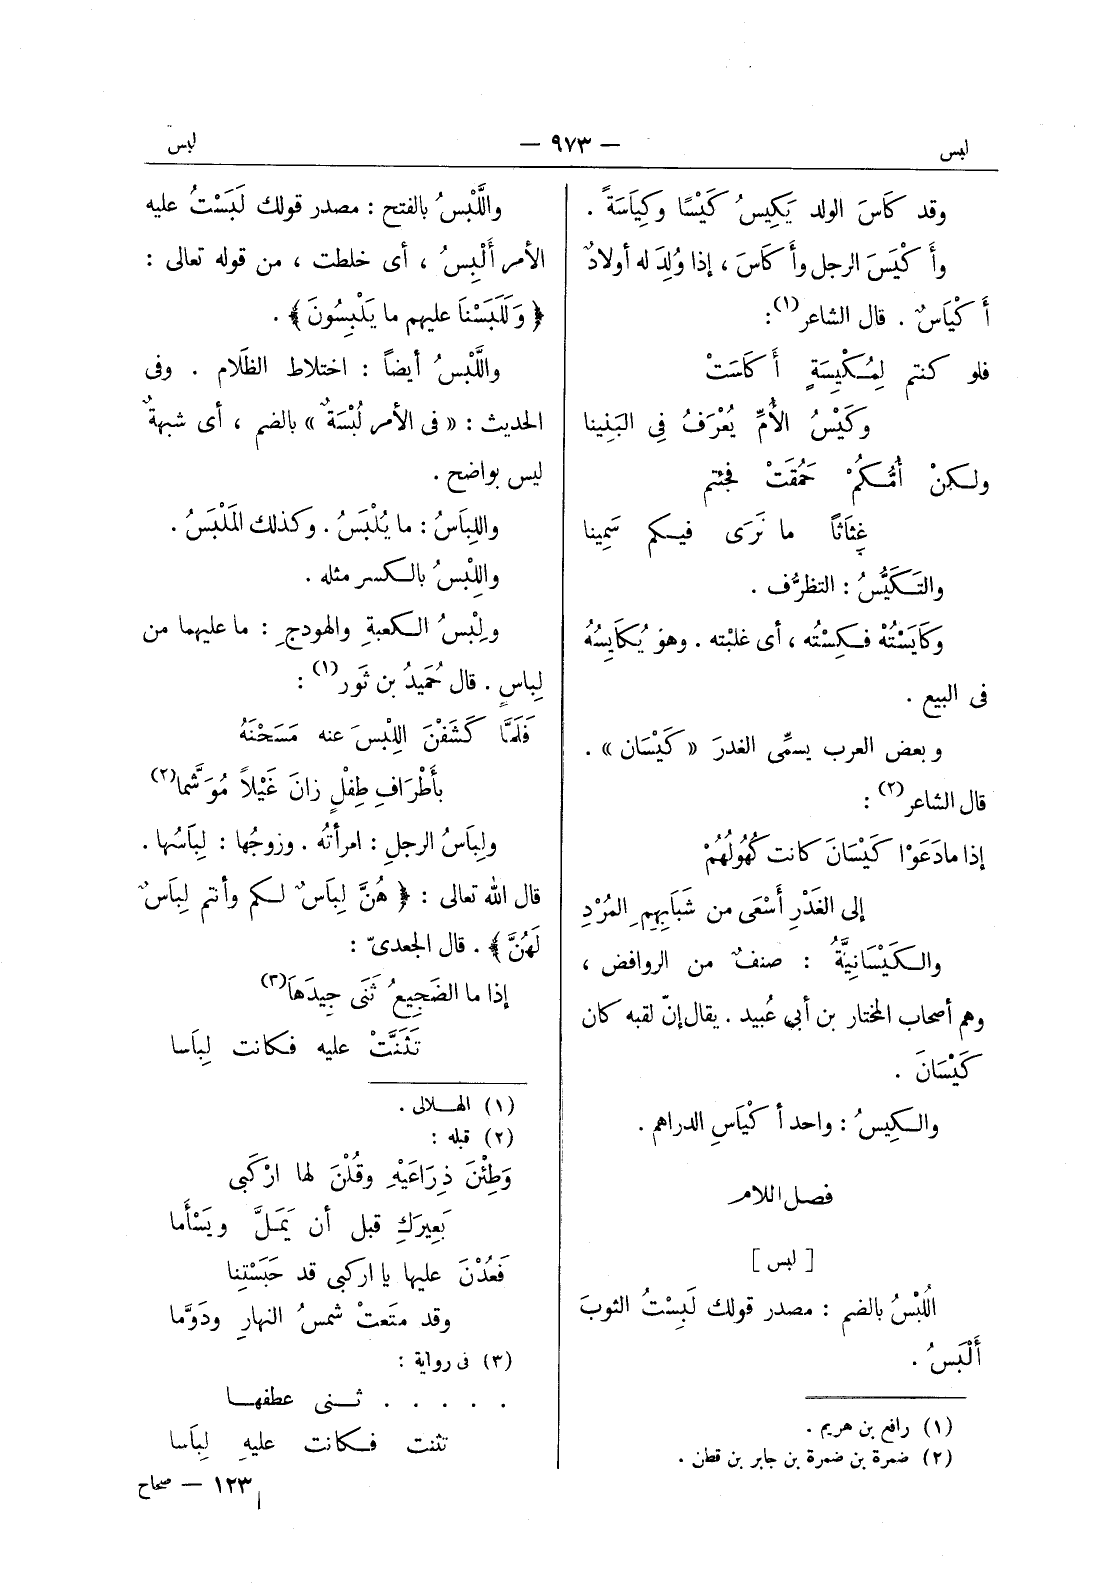 لبس
— ٩٧٣ —
لبس
وقد كَاسَ الولد يَكِيسُ كَيْسًا وكِيَاسَةً .
وأَ كْيَسَ الرجل وأَ كَاسَ ، إذا وُلِدَ له أولادٌ
أَ كْيَاسٌ . قال الشاعر(١):
فلو كنتم لِمُكْيِسَةٍ أَ كَاسَتْ
وكَيْسُ الأُمِّ يُعْرَفُ فِى البَنِينا
ولكِنْ أُمُّكُمْ حَمُقَتْ فجئتم
غِثَاثًا ما نَرَى فيكم سَمِينا
والتَكَيُّسُ : التظرُّف .
وكَايَسْتُهُ فكِسْتُه ، أى غلبْته . وهو يُكَايِسُهُ
فى البيع .
وبعض العرب يسمِّى الغدرَ « كَيْسَان » .
قال الشاعر(٢) :
إذا مادَعَوْا كَيْسَانَ كانت كُهُولُهُمْ
إلى الغَدْرِ أَسْعَى من شَبَابِهِمِ المُرْدِ
والكَيْسَانِيَّةُ : صنفٌ من الروافض ،
وهم أصحاب المختار بن أبى عُبيد . يقال إنّ لقبه كان
كَيْسَانَ .
والكِيسُ : واحد أَ كْيَاسِ الدراهم .
فصل اللام
[ لبس ]
اللُبْسُ بالضم : مصدر قولك لَبِسْتُ الثوبَ
أَلْبَسُ .
(١) رافع بن هريم .
(٢) ضمرة بن ضمرة بن جابر بن قطن .
واللَّبْسُ بالفتح : مصدر قولك لَبَسْتُ عليه
الأمر أَلْبِسُ ، أى خلطت ، من قوله تعالى :
﴿ وَلَلَبَسْنَا عليهم ما يَلْبِسُونَ ﴾ .
واللَّبْسُ أيضاً : اختلاط الظَلام . وفى
الحديث : « فى الأمر لُبْسَةٌ » بالضم ، أى شبهةٌ
ليس بواضح .
واللِبَاسُ : ما يُلْبَسُ . وكذلك المَلْبَسُ .
واللِبْسُ بالكسر مثله .
ولِبْسُ الكعبةِ والهودجِ : ما عليهما من
لِباسٍ . قال حُمَيدُ بن ثَور(١) :
فَلَمَّا كَشَفْنَ اللِبْسَ عنه مَسَحْنَهُ
بأَطْرَافِ طِفْلٍ زانَ غَيْلاً مُوَشَّما(٢)
ولِبَاسُ الرجلِ : امرأتُه . وزوجُها : لِبَاسُها .
قال الله تعالى : ﴿ هُنَّ لِبَاسٌ لكم وأنتم لِبَاسٌ
لَهُنَّ ﴾ . قال الجعدىّ :
إذا ما الضَجِيعُ ثَنَى جِيدَهَا(٣)
تَثَنَّتْ عليه فكانت لِبَاسا
(١) الهلالى .
(٢) قبله :
وَطِئْنَ ذِرَاعَيْهِ وقُلْنَ لها ارْكَبِى
بَعِيرَكِ قبل أن يَمَلَّ ويَسْأَما
فَعُدْنَ عليها يا اركبى قد حَبَسْتِنا
وقد متَعتْ شمسُ النهارِ ودَوَّما
(٣) فى رواية :
. . . . . ثنى عطفها
تثنت فكانت عليهِ لِبَاسا
١٢٣ — صحاح